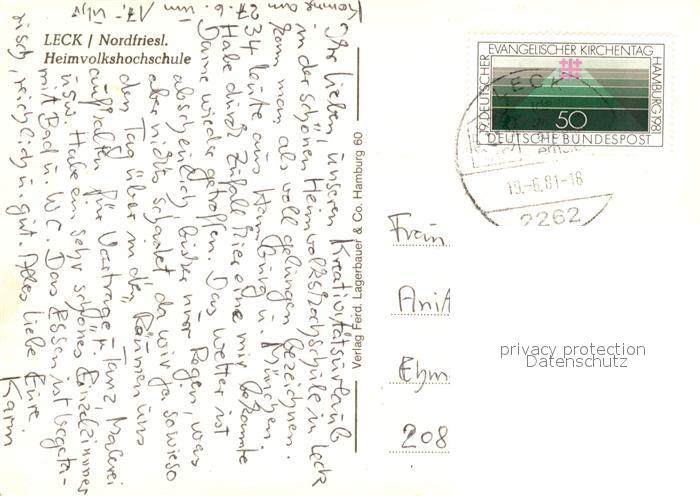 LECK / Nordfriesl.
Heimvolkshochschule
Komme am
27.6. um
17- Uhr
Ihr Lieben, unseren Kreativitätsurlaub
in der schönen Heimvolkshochschule in Leck
kann man als voll gelungen bezeichnen.
34 Leute aus Hamburg u. München.
Habe durch Zufall hier eine mir bekannte
Dame wieder getroffen. Das Wetter ist
abscheulich bisher nur Regen, was
aber nichts schadet, da wir ja sowieso
den Tag über in den Räumen uns
aufhalten für Vorträge - Tanz, Malerei
usw. Habe ein sehr schönes Einzelzimmer
mit Bad u. WC. Das Essen ist vegeta-
risch, reichlich u. gut. Alles Liebe Eure
Karin
Verlag Ferd. Lagerbauer & Co. Hamburg 60
19. DEUTSCHER EVANGELISCHER KIRCHENTAG HAMBURG 1981
50
DEUTSCHE BUNDESPOST
LECK
19.-6.81-16
2262
Ehm
208
privacy protection
Datenschutz